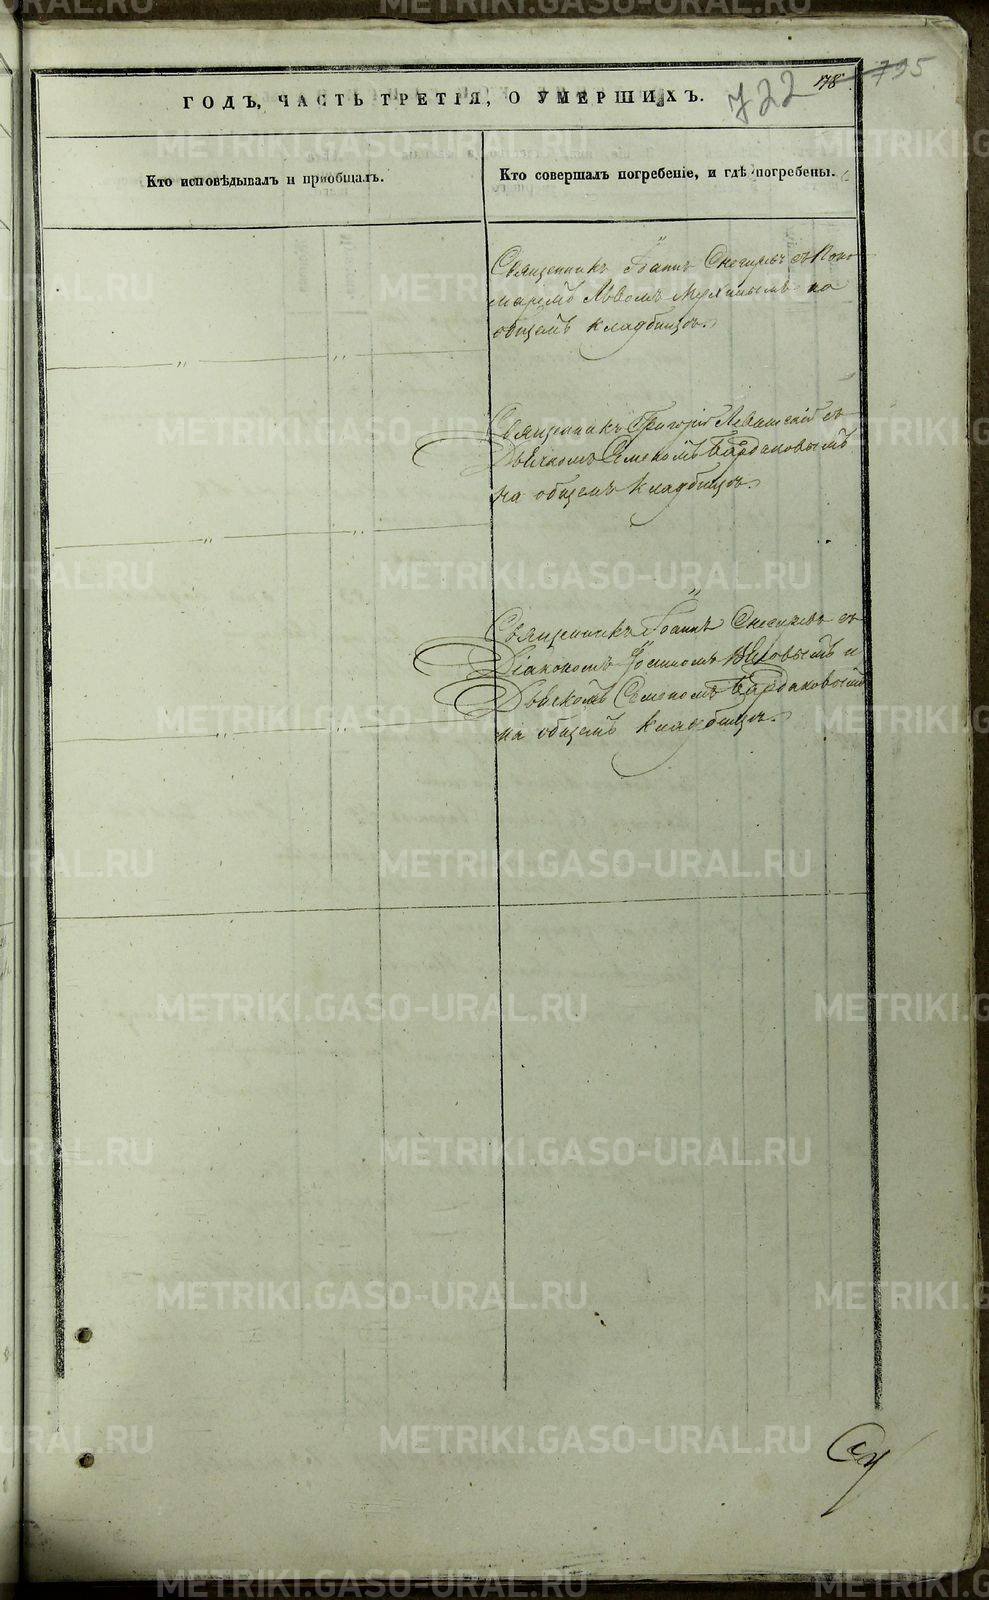 178 795
722
ГОДЪ, ЧАСТЬ ТРЕТІЯ, О УМЕРШИХЪ.
Кто исповѣдывалъ и пріобщалъ.
Кто совершалъ погребеніе, и гдѣ погребены.
Священникъ Іоаннъ Снегиревъ съ Поно
маремъ Львомъ на
общемъ кладбищѣ.
Священникъ Григорій Левитскій съ
Дьячкомъ Семеномъ Бардаковымъ
на общемъ кладбищѣ.
Священникъ Іоаннъ Снегиревъ съ
Діакономъ и
Дьячкомъ Семеномъ Бардаковымъ
на общемъ кладбищѣ.
METRIKI.GASO-URAL.RU